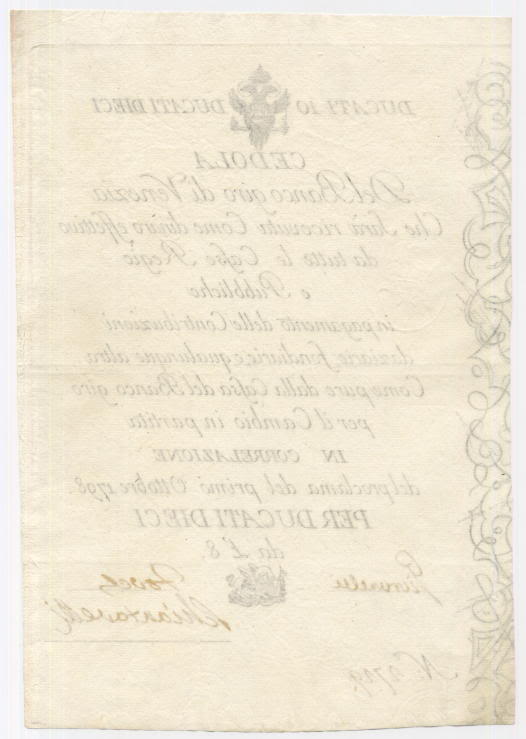 DUCATI 10 DUCATI DIECI
CEDOLA
Del Banco giro di Venezia
Che sarà ricevuta Come danaro effettivo
da tutte le Casse Regie
e Pubbliche
in pagamento delle Contribuzioni
daziarie, fondiarie, e qualunque altra
Come pure dalla Cassa del Banco giro
per il Cambio in partita
IN CORRELAZIONE
del proclama del primo Ottobre 1798
PER DUCATI DIECI
da £ 8.
N.